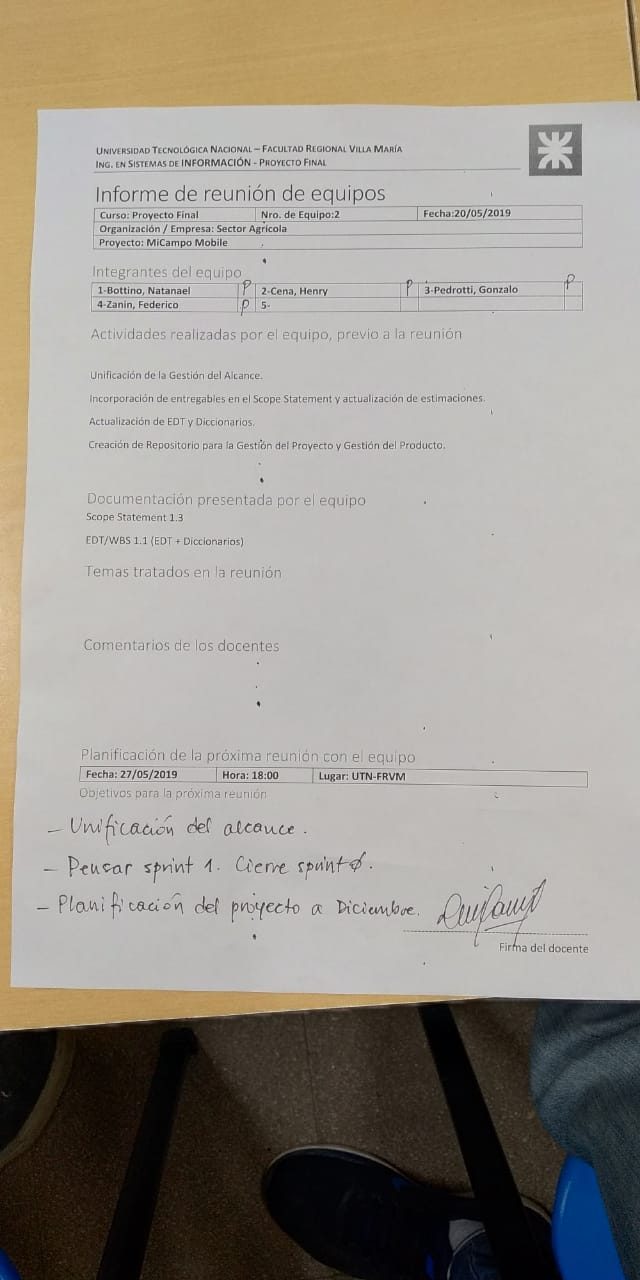 UNIVERSIDAD TECNOLÓGICA NACIONAL – FACULTAD REGIONAL VILLA MARÍA
ING. EN SISTEMAS DE INFORMACIÓN - PROYECTO FINAL
Informe de reunión de equipos
Curso: Proyecto Final Nro. de Equipo:2 Fecha:20/05/2019
Organización / Empresa: Sector Agrícola
Proyecto: MiCampo Mobile
Integrantes del equipo
1-Bottino, Natanael P 2-Cena, Henry P 3-Pedrotti, Gonzalo P
4-Zanin, Federico P 5-
Actividades realizadas por el equipo, previo a la reunión
Unificación de la Gestión del Alcance.
Incorporación de entregables en el Scope Statement y actualización de estimaciones.
Actualización de EDT y Diccionarios.
Creación de Repositorio para la Gestión del Proyecto y Gestión del Producto.
Documentación presentada por el equipo
Scope Statement 1.3
EDT/WBS 1.1 (EDT + Diccionarios)
Temas tratados en la reunión
Comentarios de los docentes
Planificación de la próxima reunión con el equipo
Fecha: 27/05/2019 Hora: 18:00 Lugar: UTN-FRVM
Objetivos para la próxima reunión
- Unificación del alcance.
- Pensar sprint 1. Cierre sprint 0.
- Planificación del proyecto a Diciembre.
Firma del docente